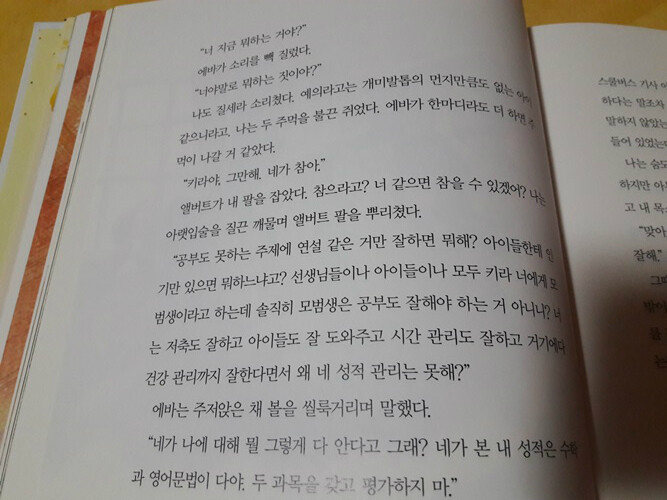 "너 지금 뭐하는 거야?"
에바가 소리를 빽 질렀다.
"너야말로 뭐하는 짓이야?"
나도 질세라 소리쳤다. 예의라고는 개미발톱의 먼지만큼도 없는
같으니라고, 나는 두 주먹을 불끈 쥐었다. 에바가 한마디라도 더 하면 주
먹이 나갈 거 같았다.
"키라야, 그만해. 네가 참아."
앨버트가 내 팔을 잡았다. 참으라고? 너 같으면 참을 수 있겠어? 나는
아랫입술을 질끈 깨물며 앨버트 팔을 뿌리쳤다.
"공부도 못하는 주제에 연설 같은 거만 잘하면 뭐해? 아이들한테 인
기만 있으면 뭐하느냐고? 선생님들이나 아이들이나 모두 키라 너에게 모
범생이라고 하는데 솔직히 모범생은 공부도 잘해야 하는 거 아니니? 너
는 저축도 잘하고 아이들도 잘 도와주고 시간 관리도 잘하고 거기에다
건강 관리까지 잘한다면서 왜 네 성적 관리는 못해?"
에바는 주저앉은 채 볼을 씰룩거리며 말했다.
"네가 나에 대해 뭘 그렇게 다 안다고 그래? 네가 본 내 성적은 수학
과 영어문법이 다야. 두 과목을 갖고 평가하지 마."
스쿨버스 기사
하다는 말조차
말하지 않았는
들어 있었는데
나는 숨도
하지만 아
고 내 목
"맞아
잘해."
그때